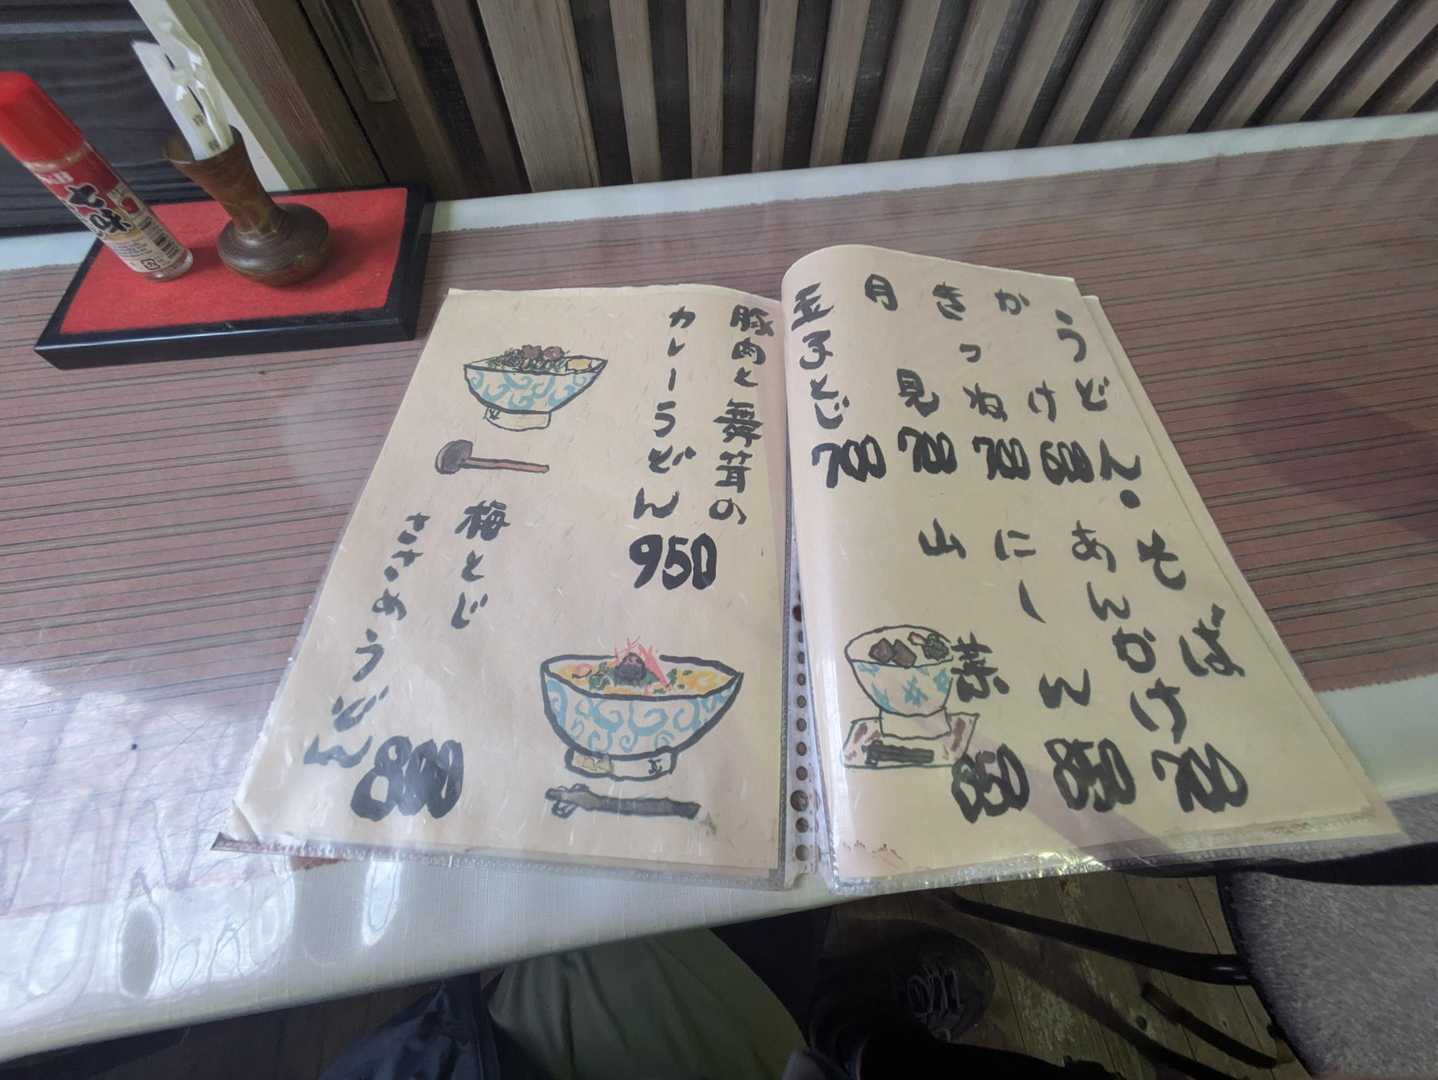 うどん・そば
かけ 600
きつね 700
月見 700
玉子とじ 700
あんかけ 700
にしん 850
山菜 850
豚肉と舞茸の
カレーうどん 950
梅とじ
ささめうどん 800
七味